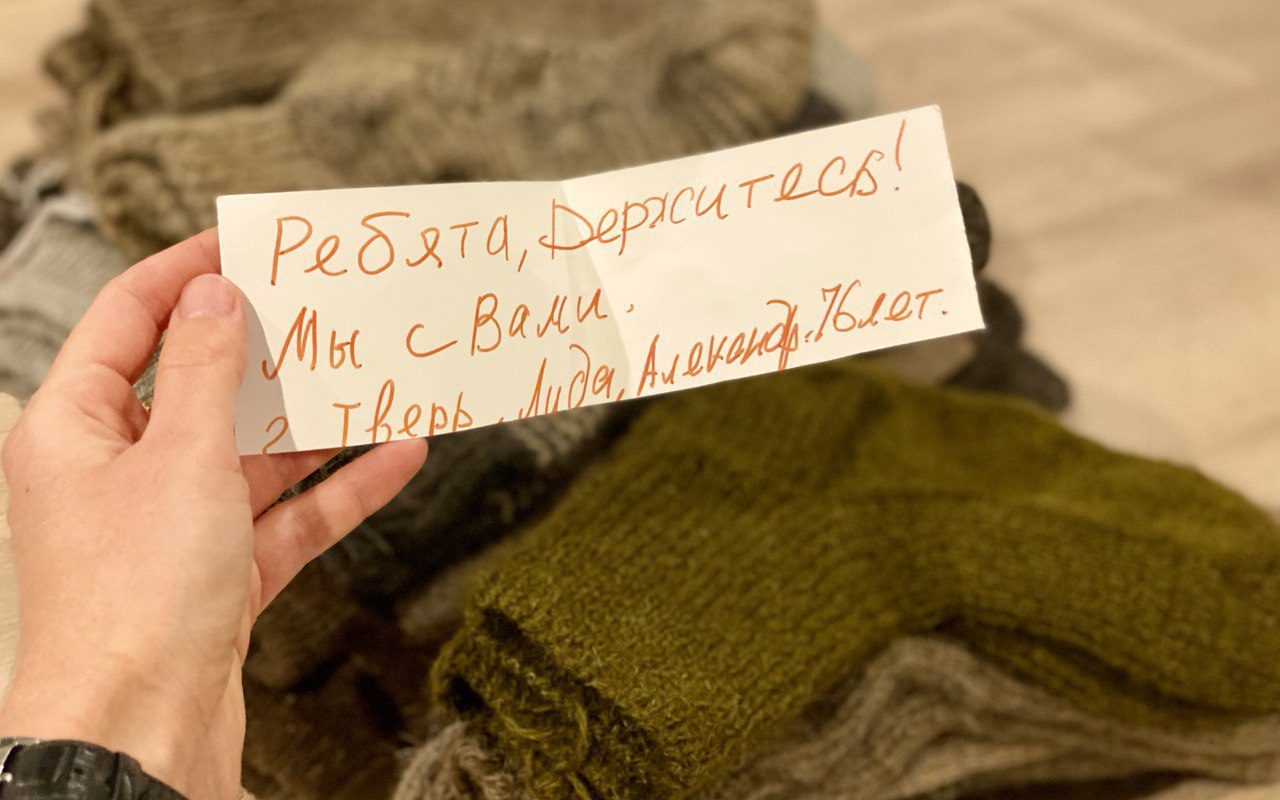 Ребята, Держитесь!
Мы с Вами.
г Тверь. Луда, Александр. 76 лет.